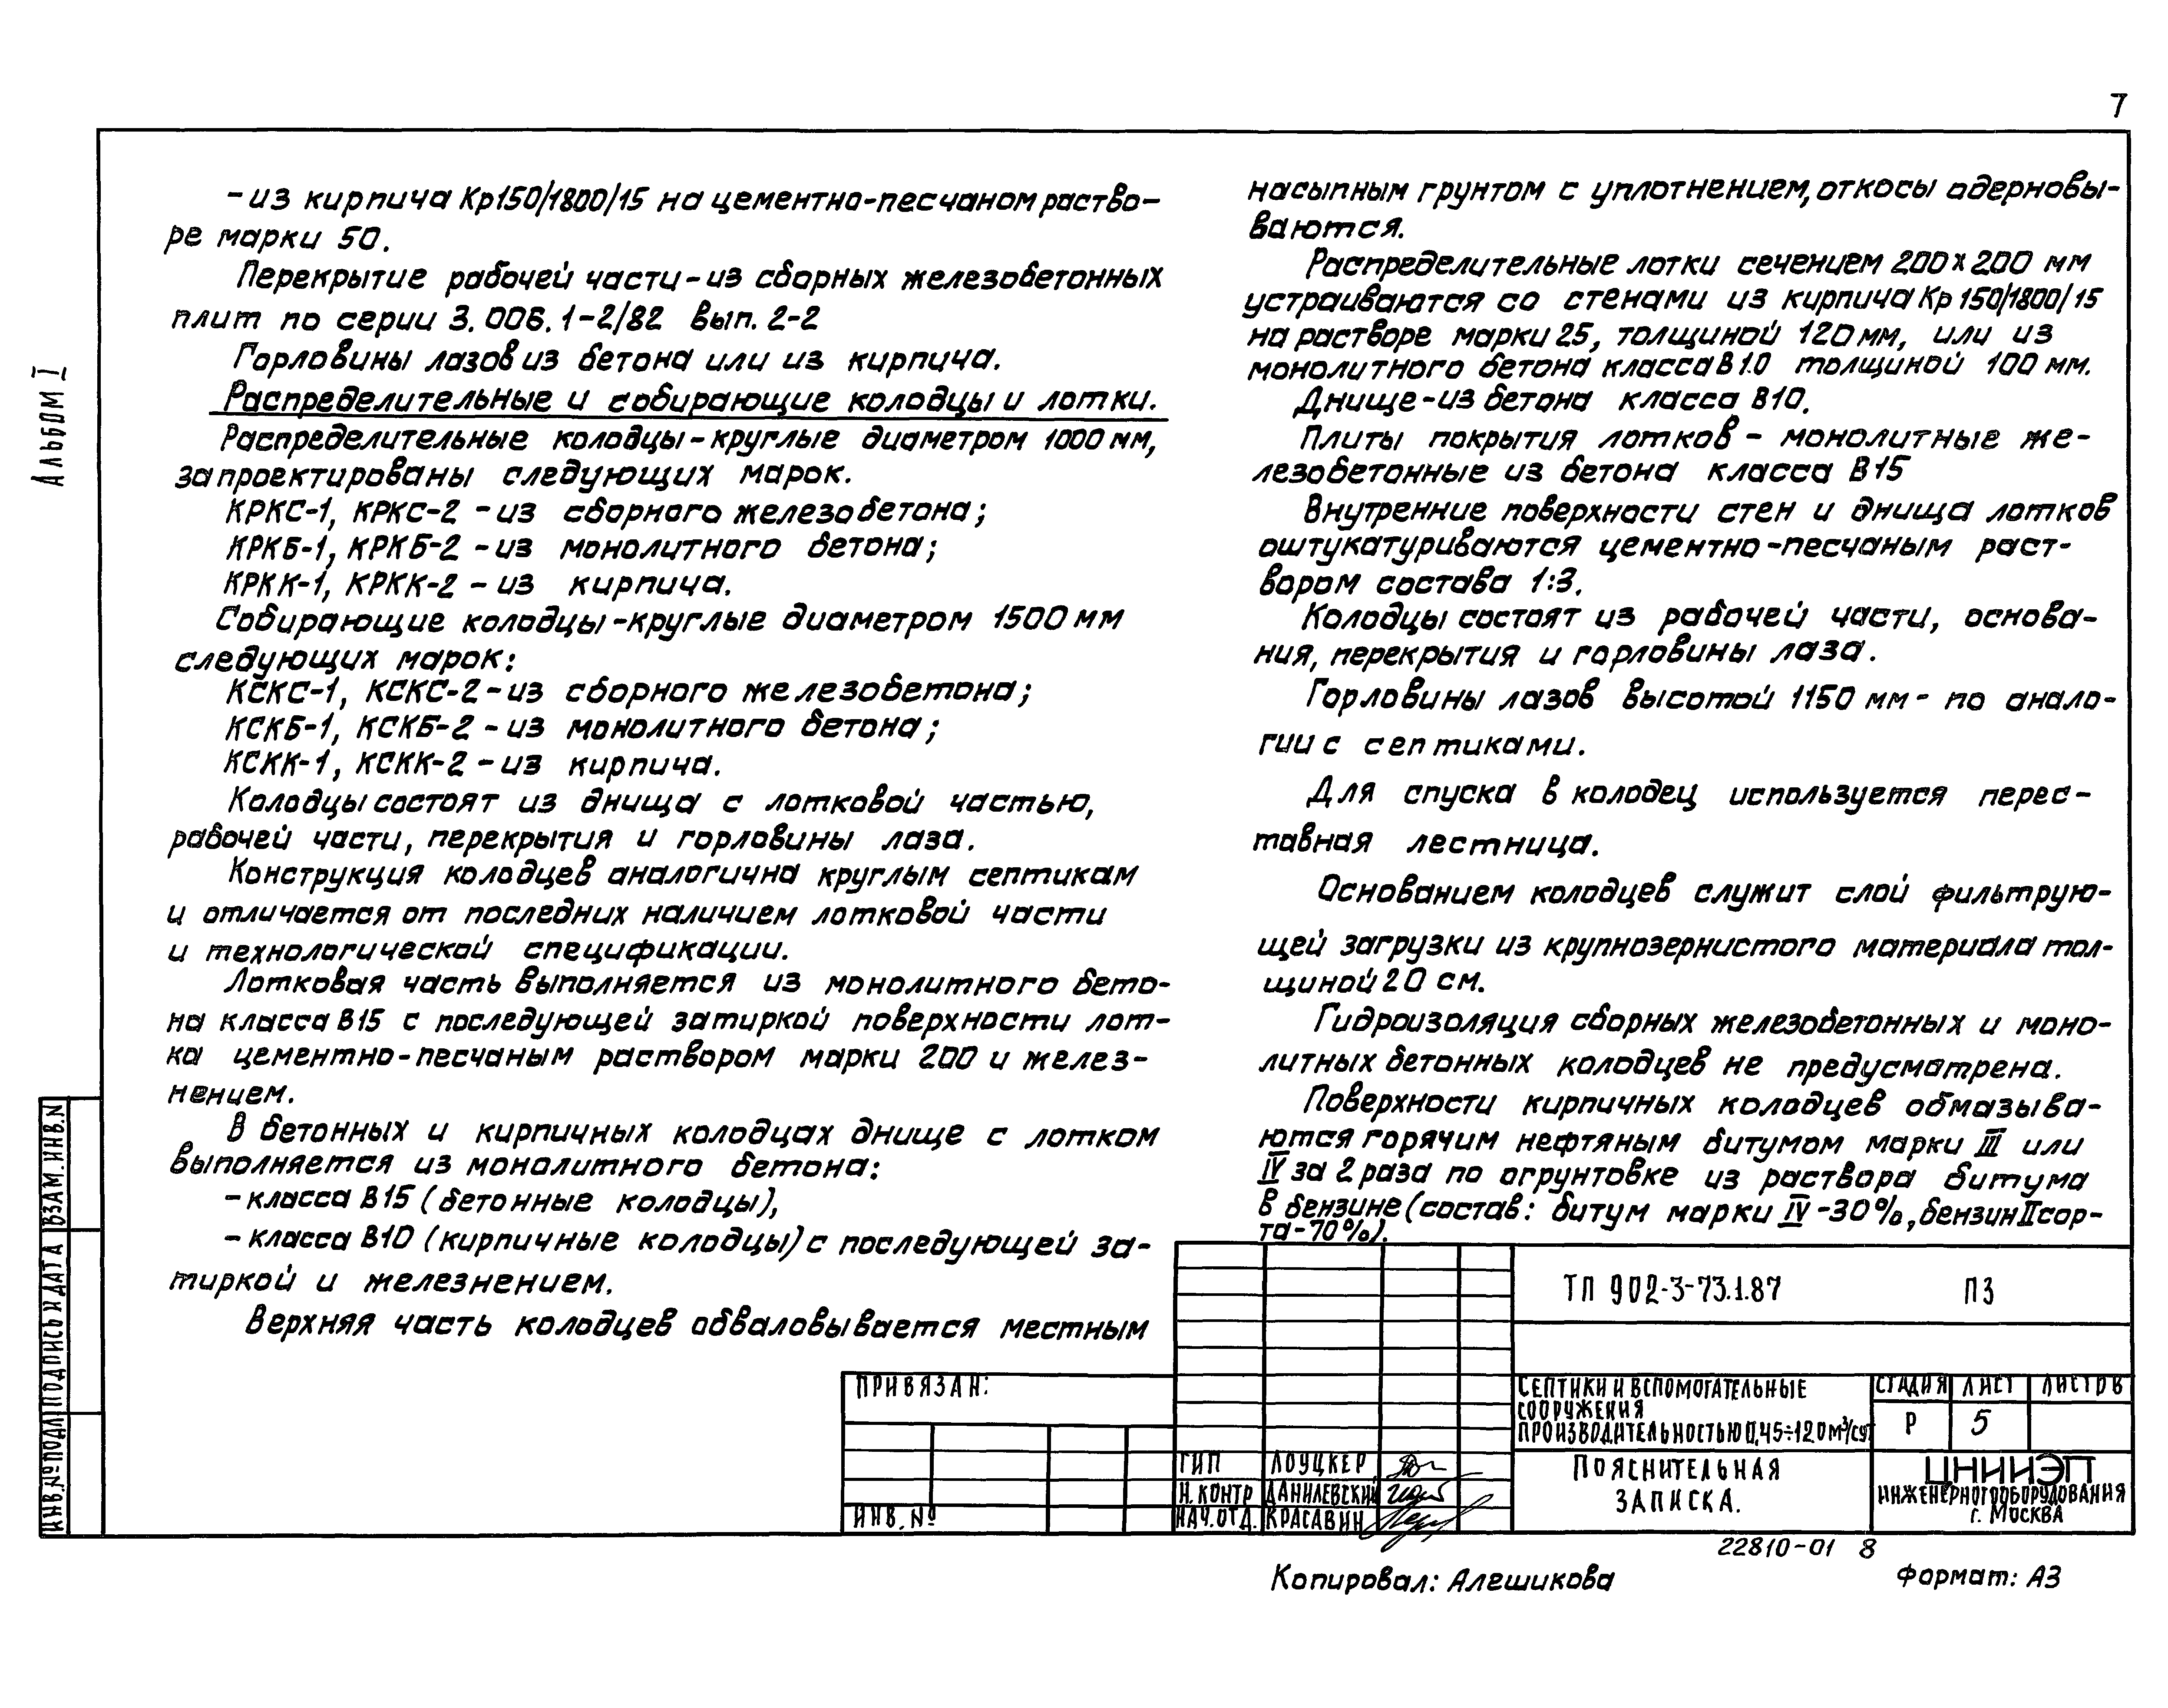 7
Альбом I
- из кирпича Кр150/1800/15 на цементно-песчаном раство-
ре марки 50.
Перекрытие рабочей части - из сборных железобетонных
плит по серии 3.006.1-2/82 вып. 2-2
Горловины лазов из бетона или из кирпича.
Распределительные и собирающие колодцы и лотки.
Распределительные колодцы - круглые диаметром 1000 мм,
запроектированы следующих марок.
КРКС-1, КРКС-2 - из сборного железобетона;
КРКБ-1, КРКБ-2 - из монолитного бетона;
КРКК-1, КРКК-2 - из кирпича.
Собирающие колодцы - круглые диаметром 1500 мм
следующих марок:
КСКС-1, КСКС-2 - из сборного железобетона;
КСКБ-1, КСКБ-2 - из монолитного бетона;
КСКК-1, КСКК-2 - из кирпича.
Колодцы состоят из днища с лотковой частью,
рабочей части, перекрытия и горловины лаза.
Конструкция колодцев аналогична круглым септикам
и отличается от последних наличием лотковой части
и технологической спецификации.
Лотковая часть выполняется из монолитного бето-
на класса В15 с последующей затиркой поверхности лот-
ка цементно-песчаным раствором марки 200 и желез-
нением.
В бетонных и кирпичных колодцах днище с лотком
выполняется из монолитного бетона:
- класса В15 (бетонные колодцы),
- класса В10 (кирпичные колодцы) с последующей за-
тиркой и железнением.
Верхняя часть колодцев обваловывается местным
насыпным грунтом с уплотнением, откосы одерновы-
ваются.
Распределительные лотки сечением 200 х 200 мм
устраиваются со стенами из кирпича Кр 150/1800/15
на растворе марки 25, толщиной 120 мм, или из
монолитного бетона класса В 1.0 толщиной 100 мм.
Днище - из бетона класса В10.
Плиты покрытия лотков - монолитные же-
лезобетонные из бетона класса В15
Внутренние поверхности стен и днища лотков
оштукатуриваются цементно-песчаным раст-
вором состава 1:3.
Колодцы состоят из рабочей части, основа-
ния, перекрытия и горловины лаза.
Горловины лазов высотой 1150 мм - по анало-
гии с септиками.
Для спуска в колодец используется перес-
тавная лестница.
Основанием колодцев служит слой фильтрую-
щей загрузки из крупнозернистого материала тол-
щиной 20 см.
Гидроизоляция сборных железобетонных и моно-
литных бетонных колодцев не предусмотрена.
Поверхности кирпичных колодцев обмазыва-
ются горячим нефтяным битумом марки III или
IV за 2 раза по огрунтовке из раствора битума
в бензине (состав: битум марки IV - 30%, бензин II сор-
та - 70%).
ТП 902-3-73.1.87 ПЗ
ПРИВЯЗАН:
ИНВ. №
СЕПТИКИ И ВСПОМОГАТЕЛЬНЫЕ
СООРУЖЕНИЯ
ПРОИЗВОДИТЕЛЬНОСТЬЮ 0,45÷12,0 м³/сут
СТАДИЯ ЛИСТ ЛИСТОВ
Р 5
ГИП ЛОУЦКЕР
Н. КОНТР ДАНИЛЕВСКИЙ
НАЧ. ОТД. КРАСАВИН
ПОЯСНИТЕЛЬНАЯ
ЗАПИСКА.
ЦНИИЭП
ИНЖЕНЕРНОГО ОБОРУДОВАНИЯ
г. МОСКВА
ИНВ. № ПОДЛ. ПОДПИСЬ И ДАТА ВЗАМ. ИНВ. N
22810-01 8
Копировал: Алешикова
Формат: А3